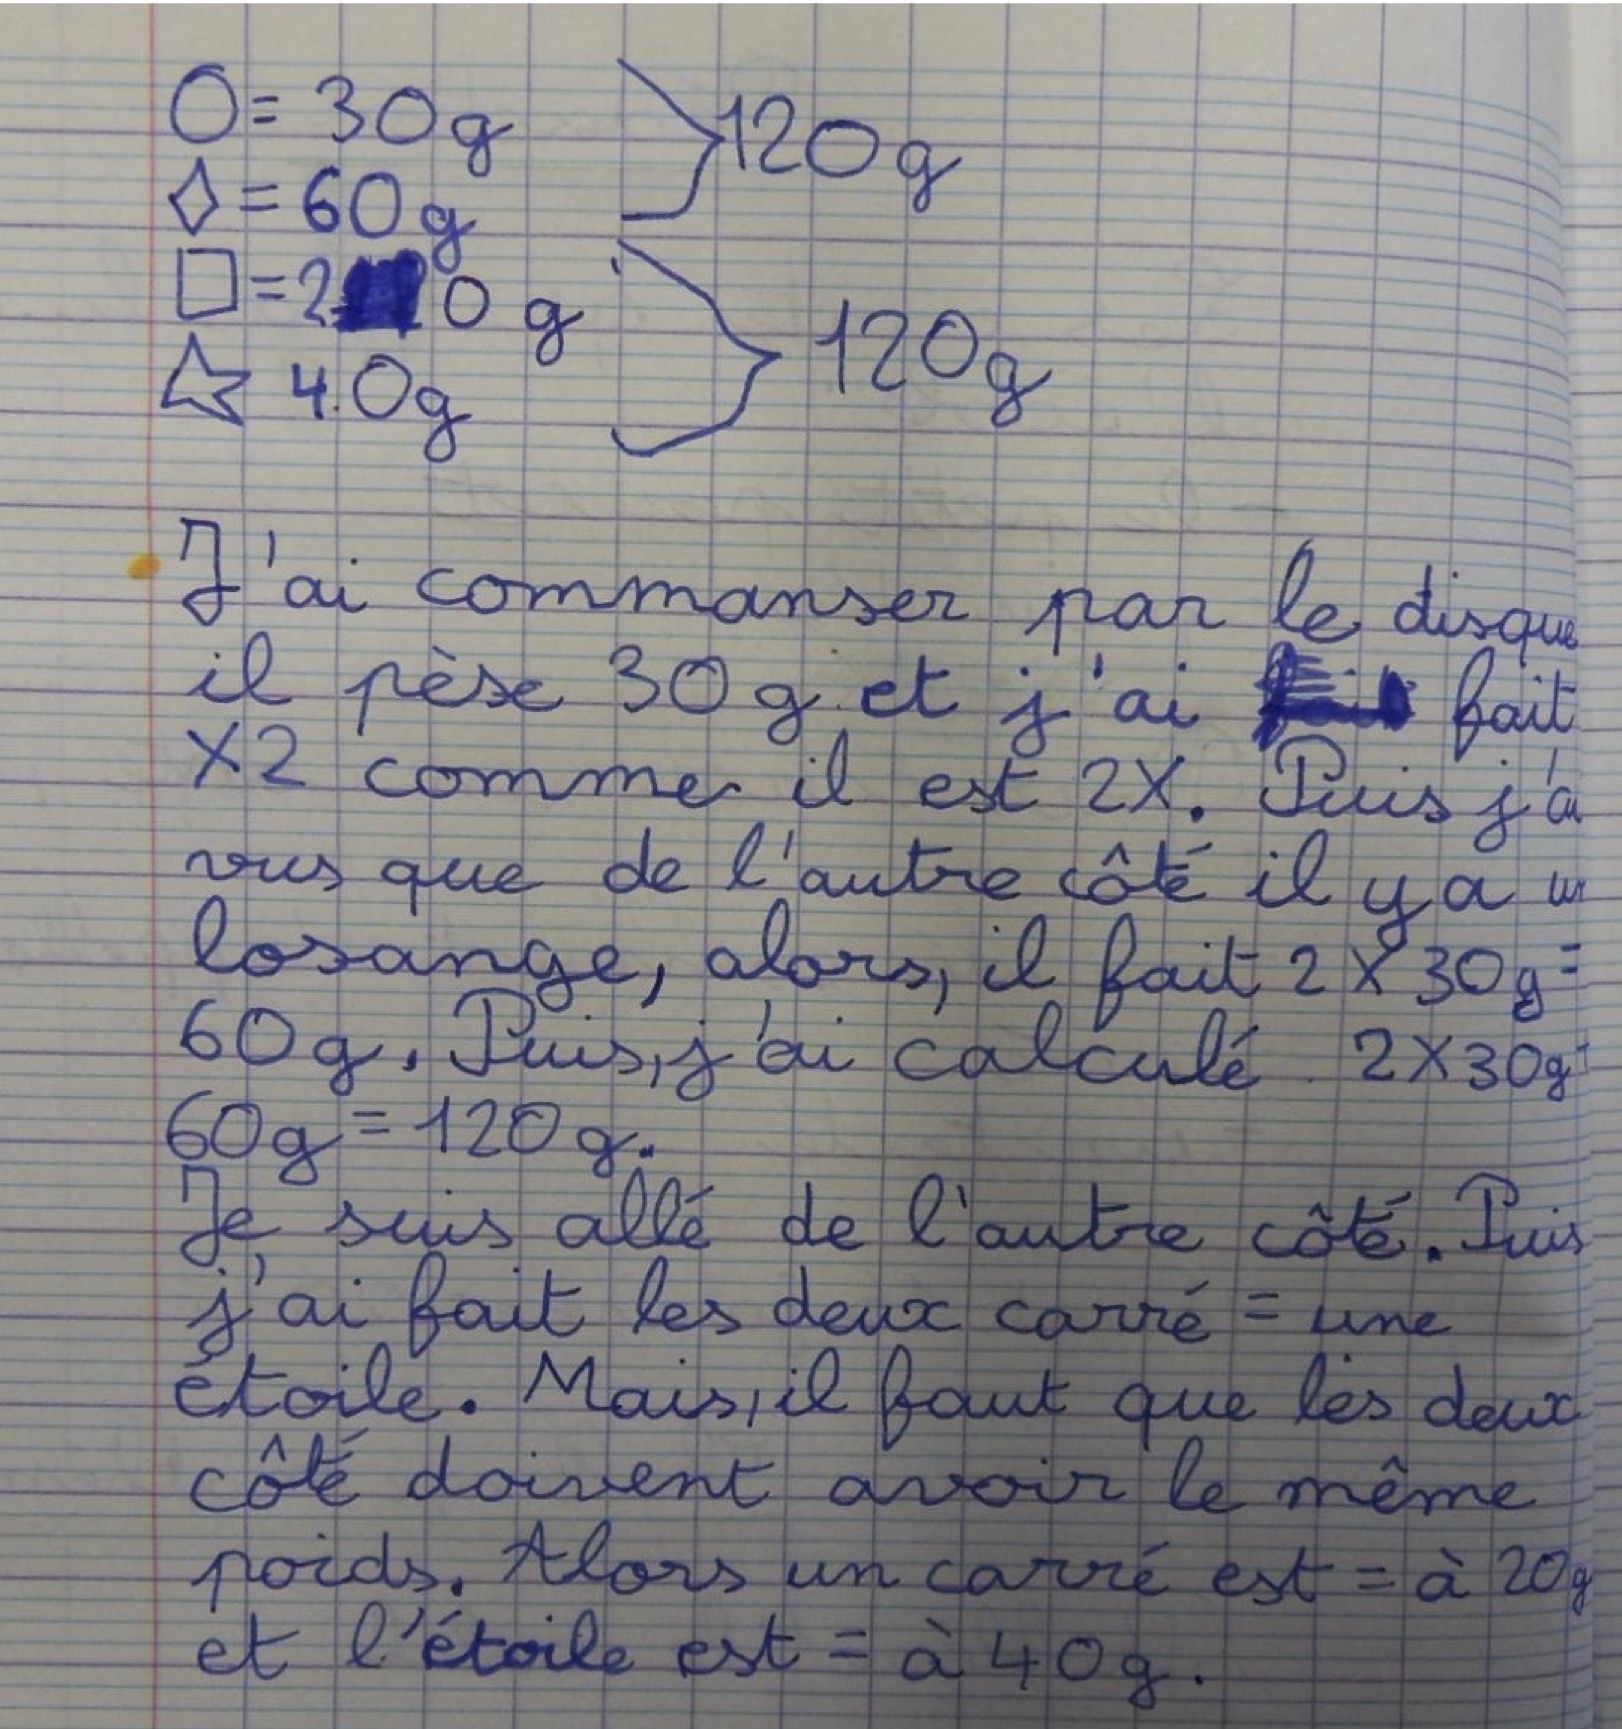 O = 30g } 120g
◇ = 60g
□ = 20 g } 120g
☆ 4.0g
J'ai commanser par le disque
il pèse 30g et j'ai fait
X2 comme il est 2X. Puis j'ai
vus que de l'autre côté il y a un
losange, alors, il fait 2 X 30g =
60g. Puis, j'ai calculé 2X30g
60g = 120g.
Je suis allé de l'autre côté. Puis
j'ai fait les deux carré = une
étoile. Mais, il faut que les deux
côté doivent avoir le même
poids. Alors un carré est = à 20g
et l'étoile est = à 40g.